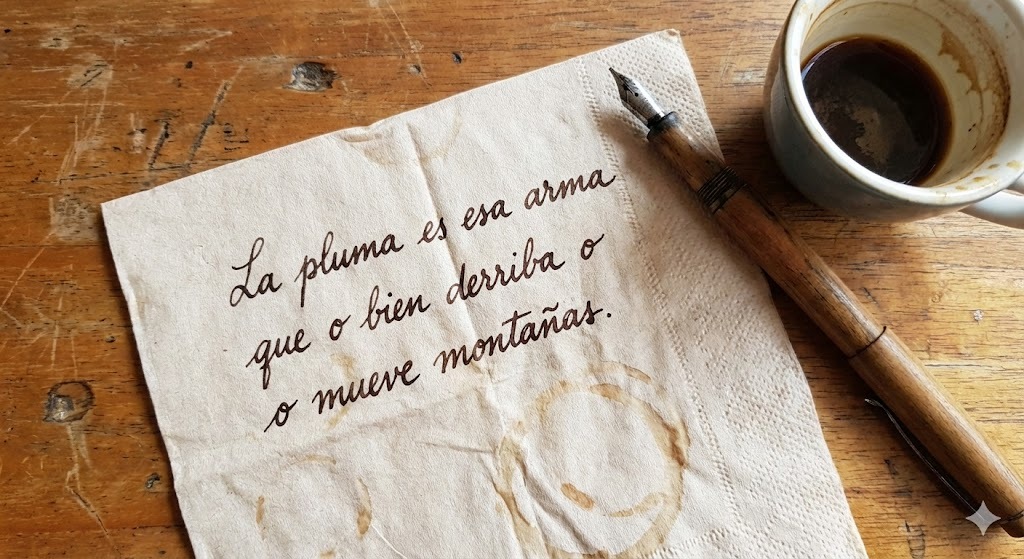 La pluma es esa arma
que o bien derriba o
o mueve montañas.